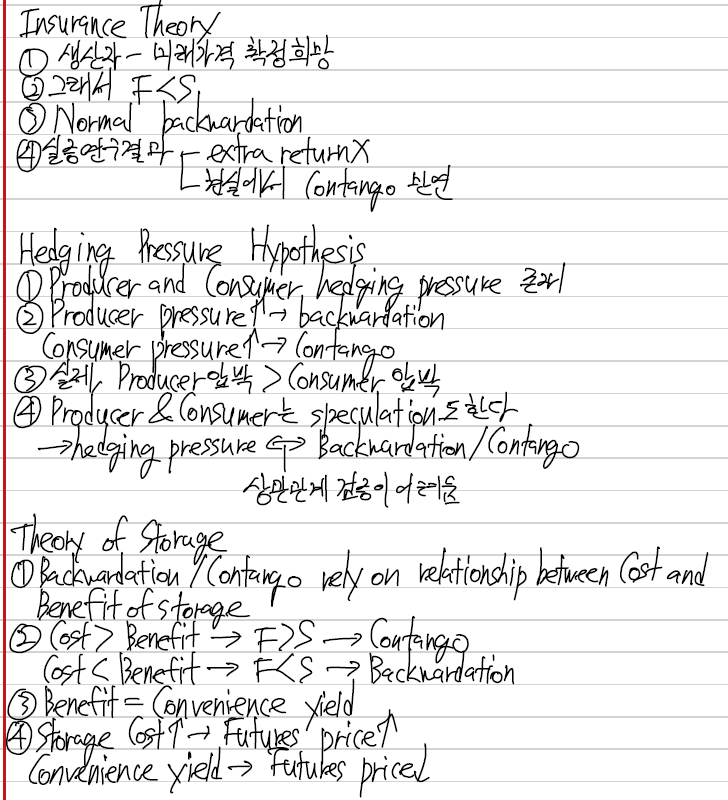 Insurance Theory
① 생산자 - 미래가격 확정희망
② 그래서 F<S
③ Normal backwardation
④ 실증연구결과 ┌ extra return X
└ 현실에서 Contango 만연
Hedging Pressure Hypothesis
① Producer and Consumer hedging pressure 존재
② Producer pressure↑ → backwardation
Consumer pressure↑ → Contango
③ 실제, Producer 압박 > Consumer 압박
④ Producer & Consumer는 speculation도 한다
→ hedging pressure ↔ Backwardation/Contango
상관관계 검증이 어려움
Theory of Storage
① Backwardation/Contango rely on relationship between Cost and
Benefit of storage
② Cost > Benefit → F>S → Contango
Cost < Benefit → F<S → Backwardation
③ Benefit = Convenience yield
④ Storage Cost↑ → Futures price↑
Convenience yield → Futures price↓